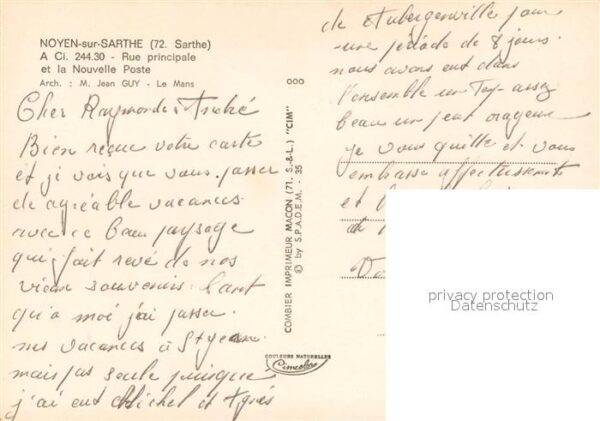 NOYEN-sur-SARTHE (72. Sarthe)
A Ci. 244.30 - Rue principale
et la Nouvelle Poste
Arch. : M. Jean GUY - Le Mans
Cher Raymonde & André
Bien reçue votre carte
et je vois que vous passer
de agréable vacances
avec ce beau paysage
qui fait revé de nos
vieux souvenirs. Tant
qu'a moi j'ai passer
mes vacances à St
mais pas seule puisque
j'ai eut Michel et Agnés
COMBIER IMPRIMEUR MACON (71. S.-&-L.) "CIM"
© by S.P.A.D.E.M. - 35
COULEURS NATURELLES
Cimcolor
de Aubergenville pour
une période de 8 jours.
nous avons eut dans
l'ensemble un Temp assez
beau un peut orageux
je vous quitte et vous
embrasse affectueusement
et
privacy protection
Datenschutz